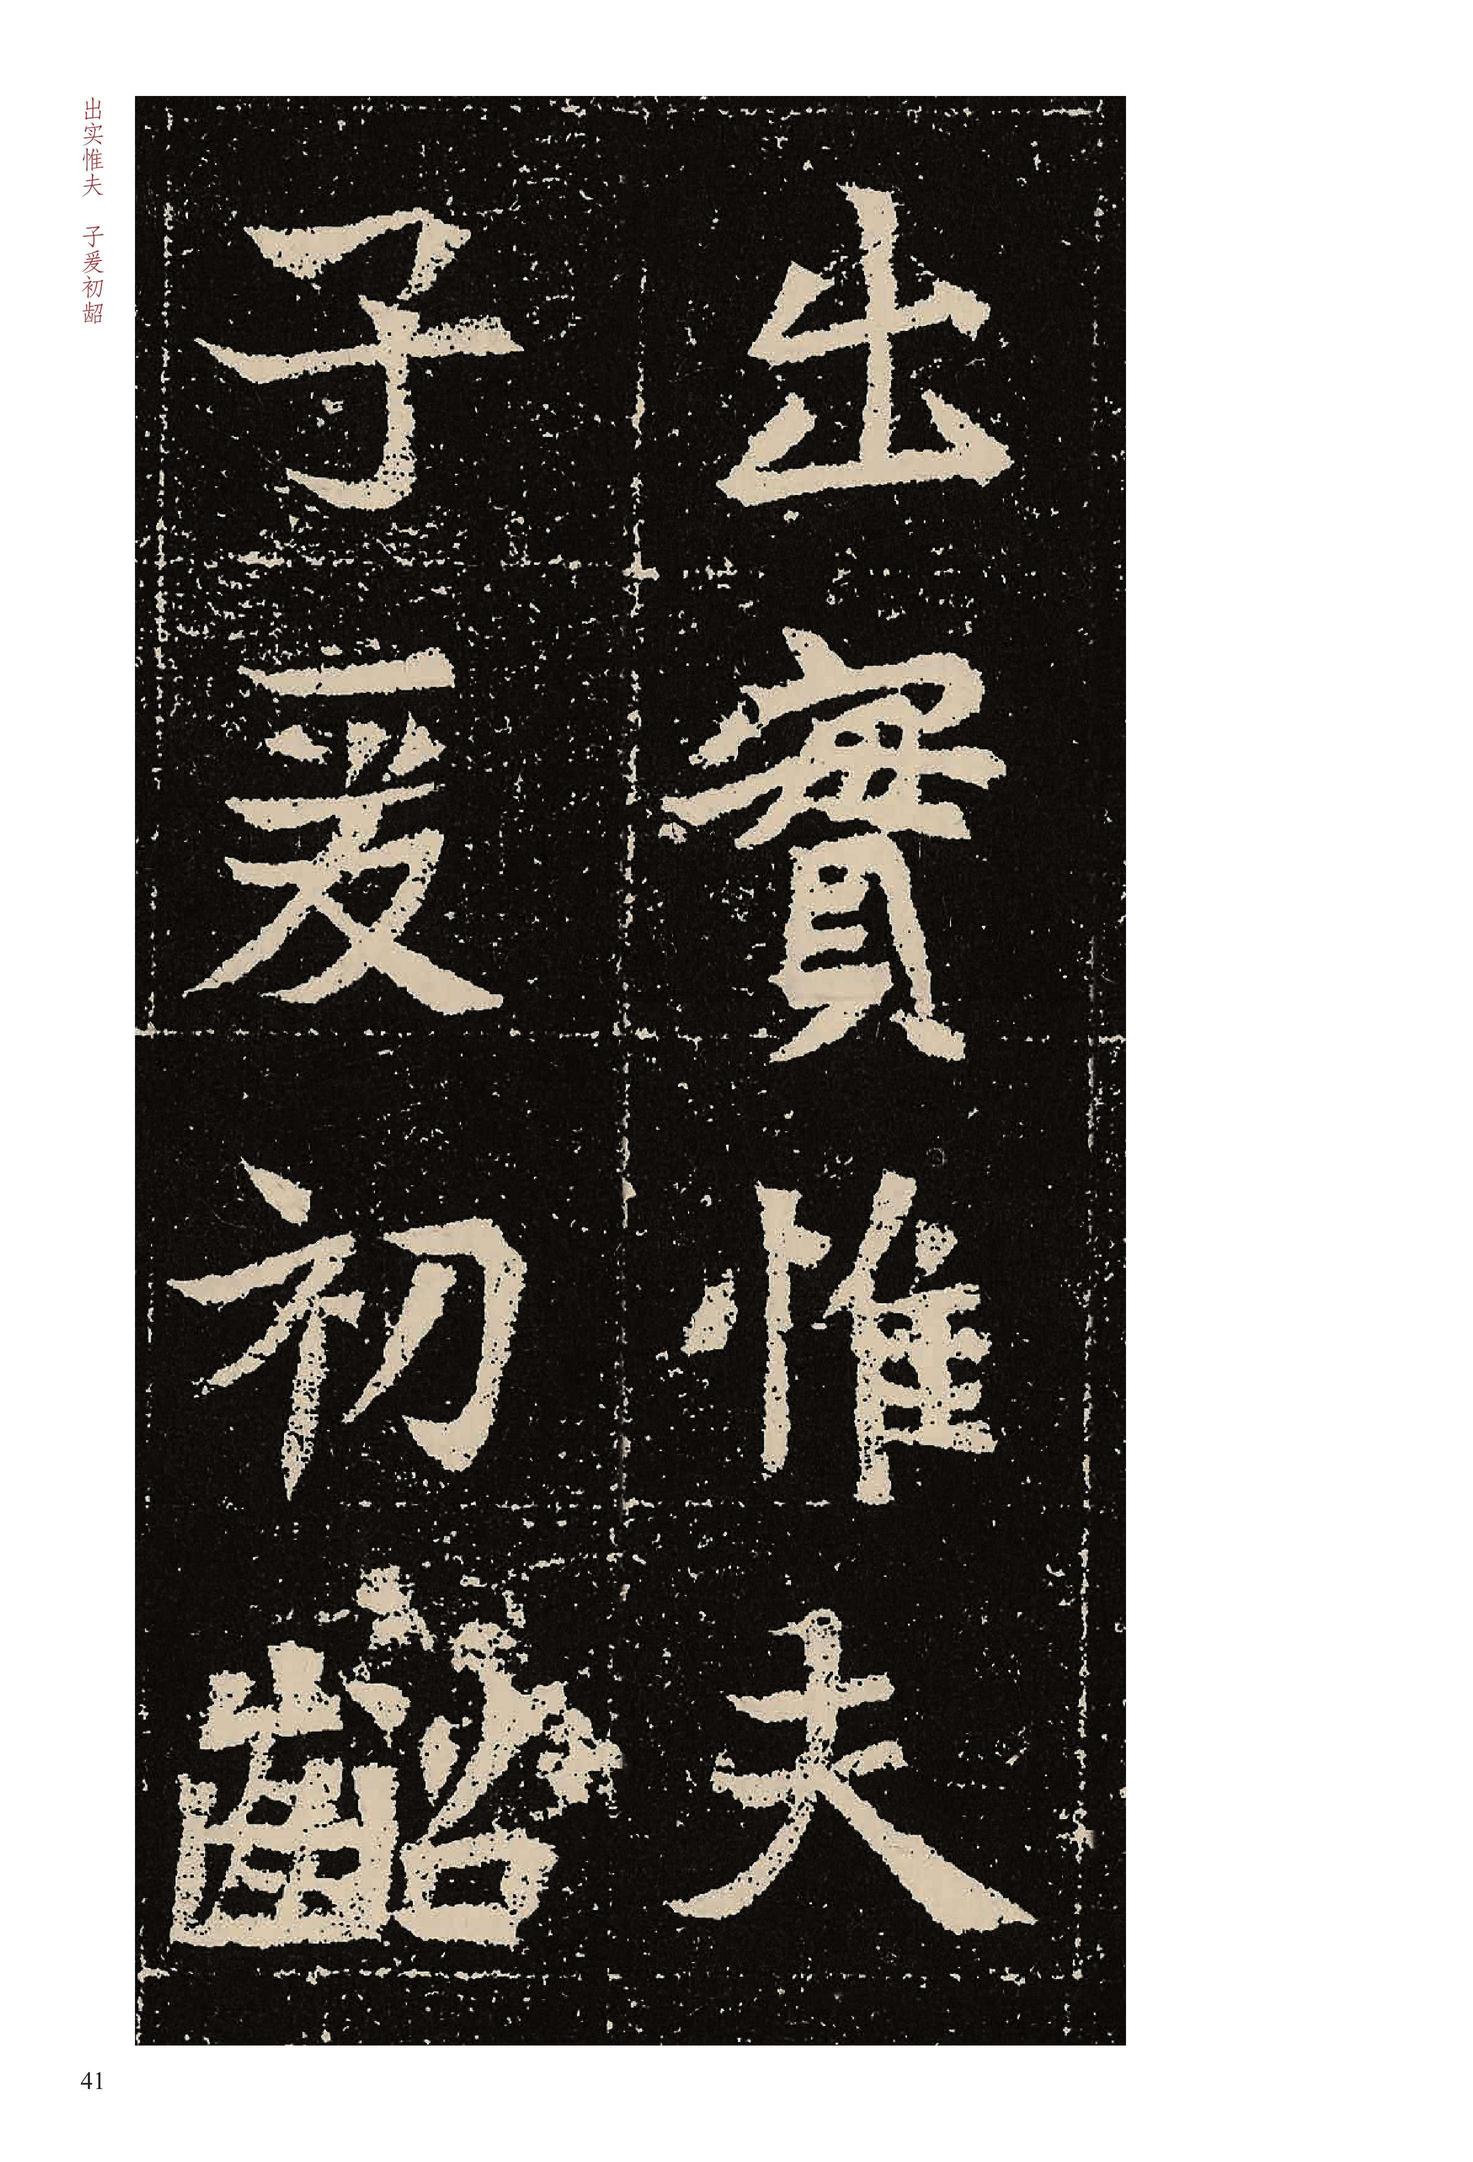 出實惟夫
子爰初齠
出实惟夫　子爰初龆
41